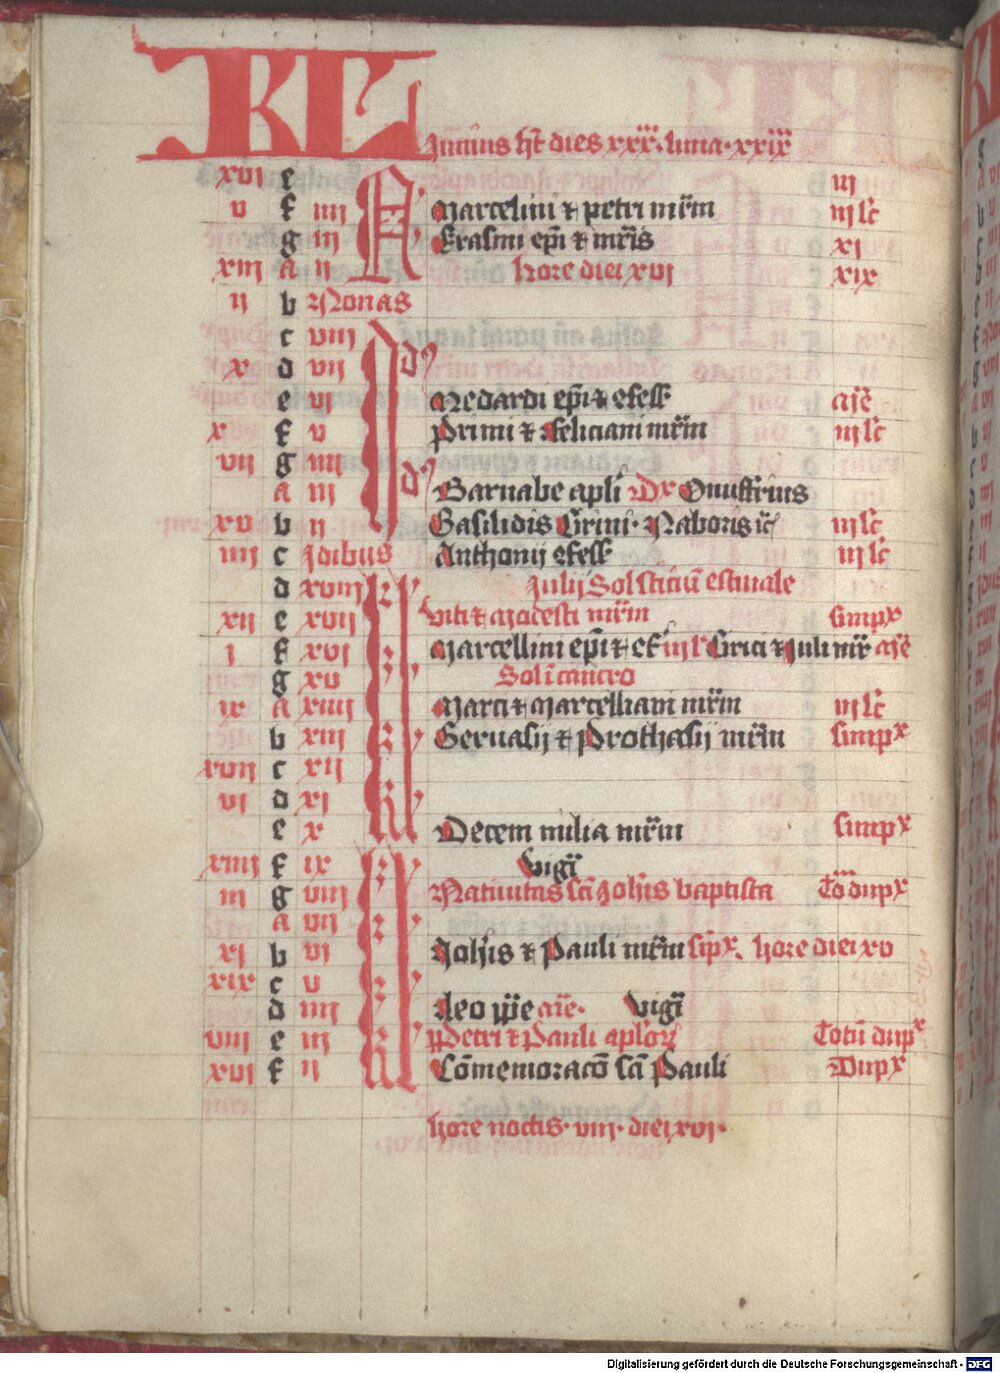 KL Junius ht dies xxx. luna. xxix
xvi e iij
v f iiij N Marcelini & petri mrm iij lc
g iij Erasmi epi & mris xj
xiij a ij hore diei xvj xix
ij b Nonas
c viij Id9
x d vij
e vj Medardi epi & cfess
x f v Primi & feliciani mrm iij lc
vij g iiij
a iij d9 Barnabe apli Dx Onuffrius
xv b ij Basilidis Cirini. Naboris iij lc
iiij c Idibus Anthonij cfess iij lc
d xviij Julij Solsticiu estiuale
xij e xvij Viti & Modesti mrm simpx
j f xvj Marcellini epi & cf iij lc Cirici & Juli mr
g xv Sol i cancro
ix a xiiij Marci & Marcelliani mrm iij lc
b xiij Geruasij & Prothasij mrm simpx
xvij c xij
vj d xj
e x Decem milia mrm simpx
xiiij f ix Vigi
iij g viij Natiuitas sci Johis baptista To dupx
a vij
xj b vj Johis & Pauli mrm sipx. hore diei xv
xix c v
d iiij Leo ppe Vigi
viij e iij Petri & Pauli aplor Totu dup x
xvj f ij Comemoraco sci Pauli Dupx
hore noctis. viij. diei xvj.
Digitalisierung gefördert durch die Deutsche Forschungsgemeinschaft - DFG